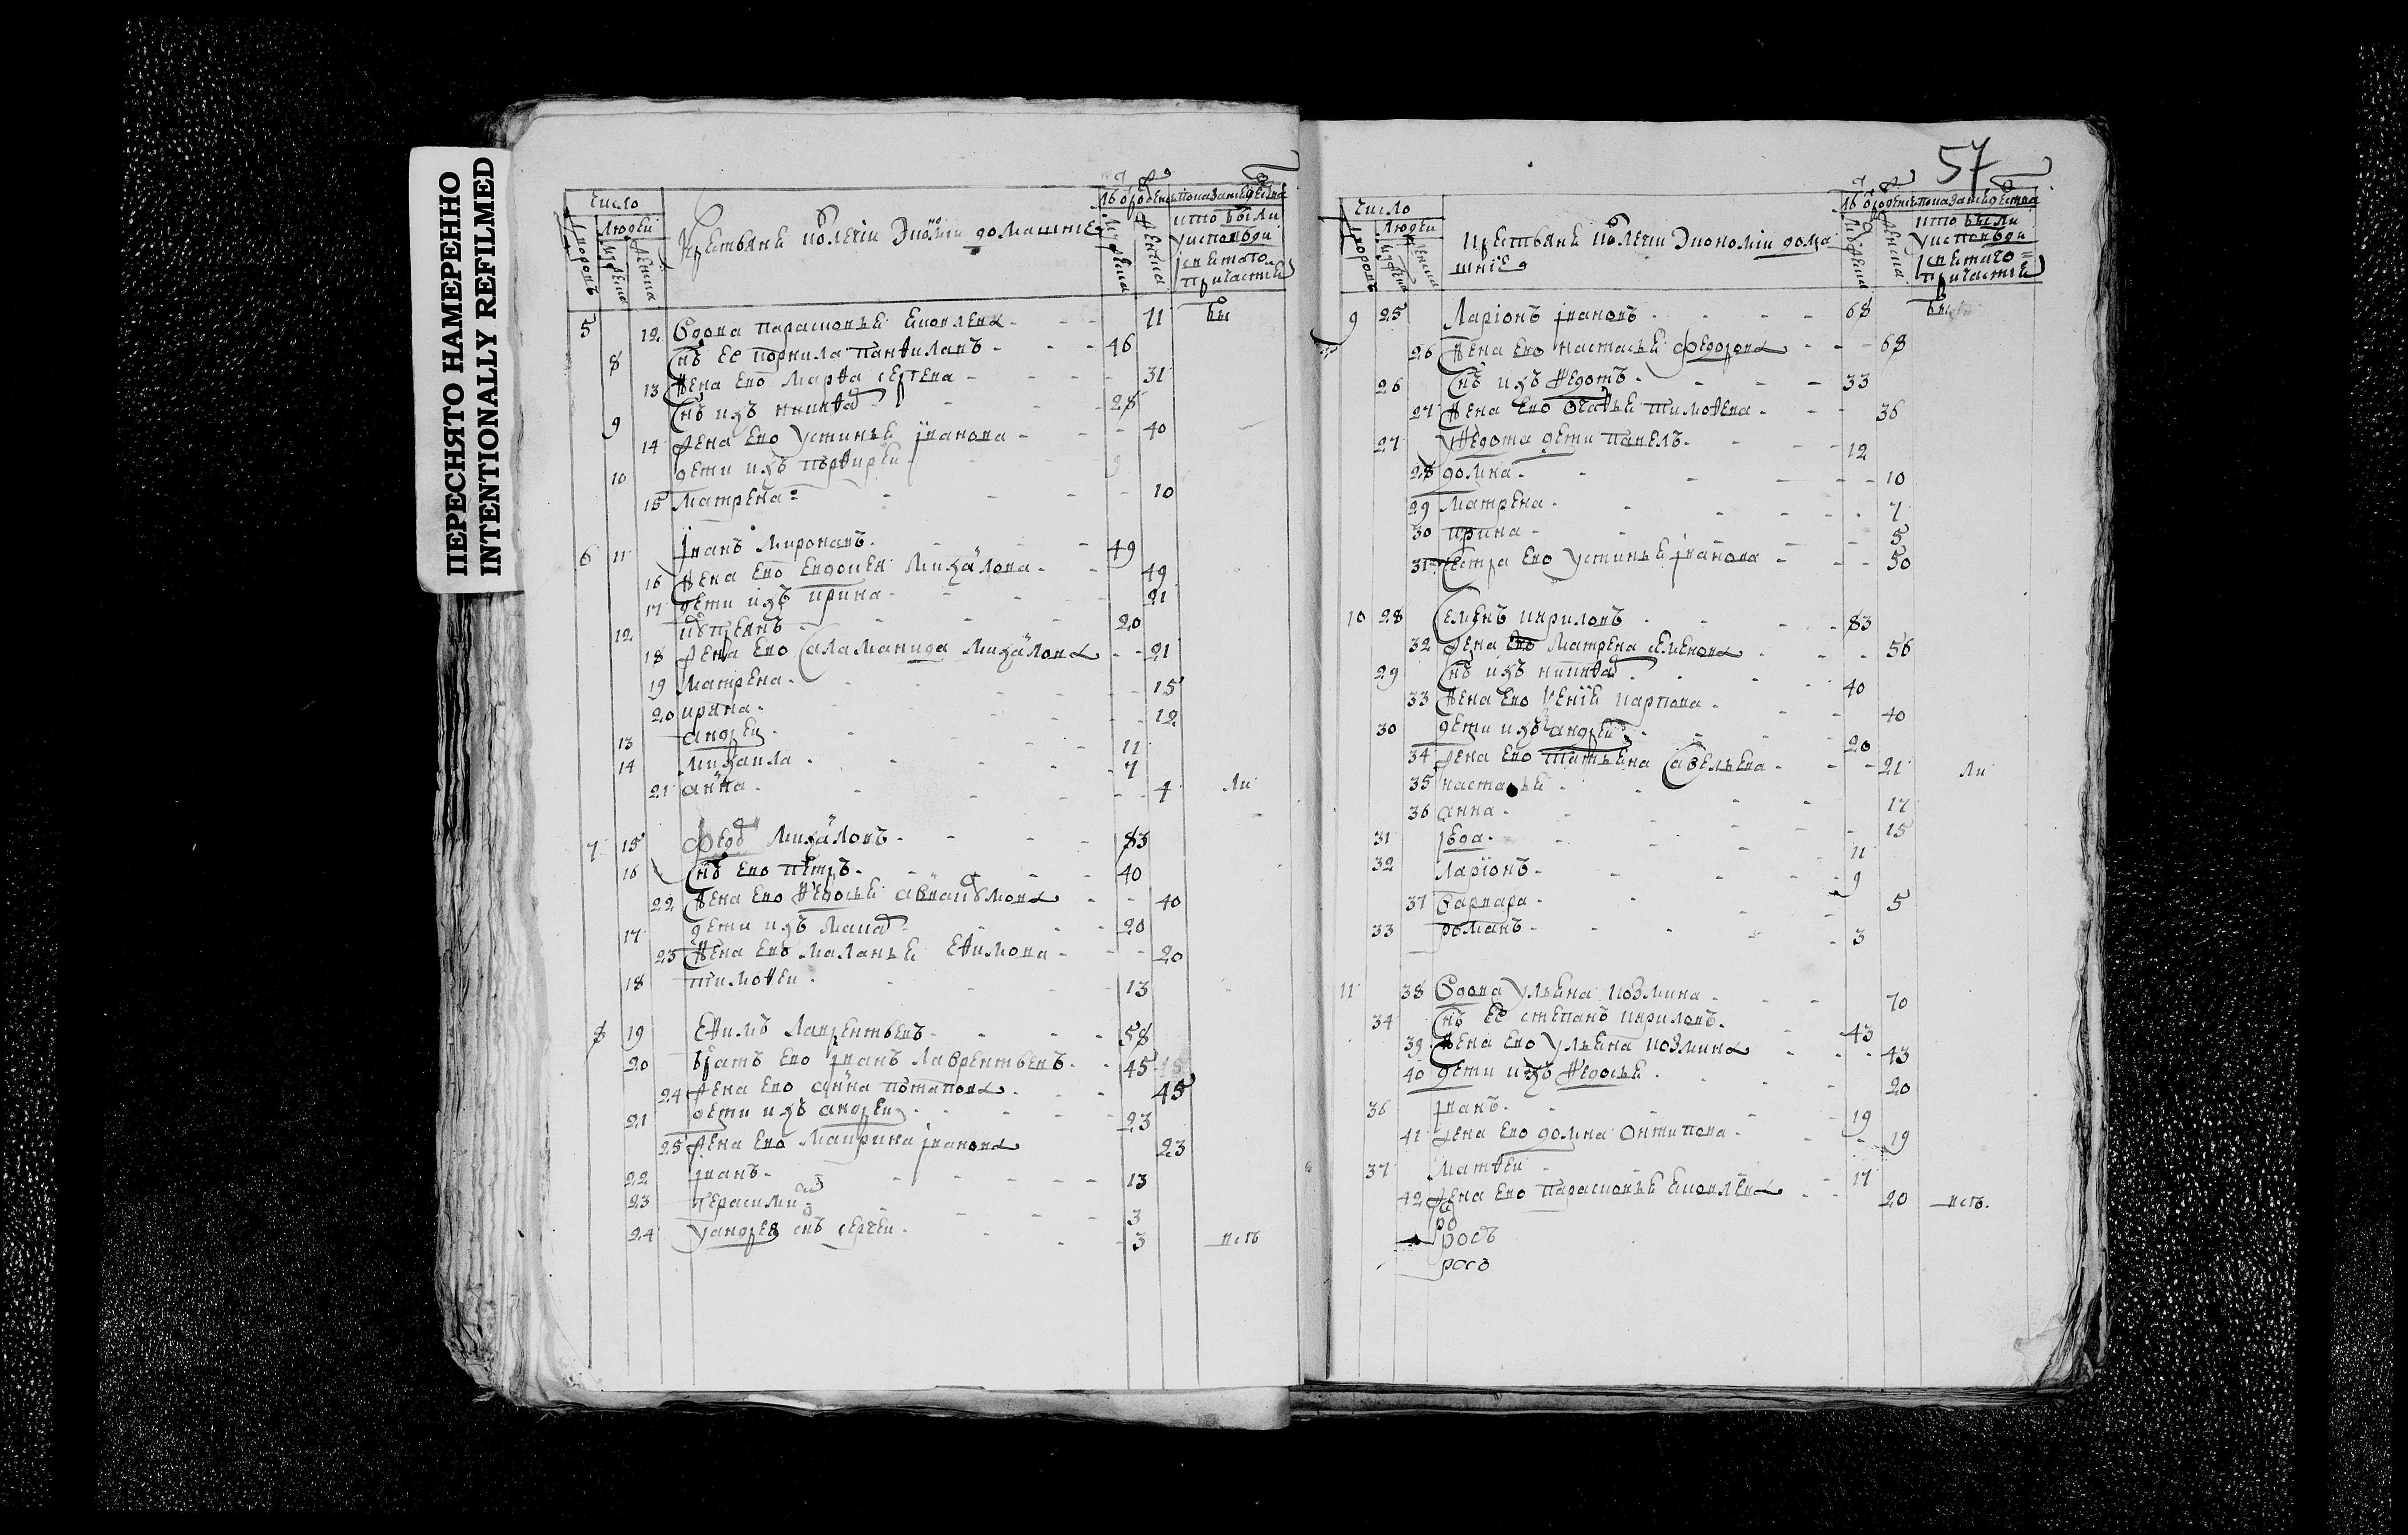 ПЕРЕСНЯТО НАМЕРЕННО
INTENTIONALLY REFILMED
число
людей
крестьяне колегіи экономіи домашніе
что были
у исповѣди
и святого
причастія
5 12 Вдова парасковья яковлева 71 бы
8 Снъ ее корнила панѳиловъ 46
13 Жена ево марѳа сергева 31
9 Снъ ихъ никита 28
14 Жена ево устинья іванова 40
10 дети ихъ порѳирей 9
15 матрена 10
6 11 Іванъ мироновъ 49
16 Жена ево евдокея михаилова 49
17 дети ихъ ирина 21
12 купреянъ 20
18 Жена ево саламанида михаилова 21
19 матрена 15
20 ирина 12
13 андрей 11
14 михаила 7
21 анна 4 ли
7 15 федоръ михаиловъ 83
16 Снъ ево петръ 40
22 Жена ево ѳедосья авакумова 40
17 дети ихъ макаръ 20
23 Жена ево маланья еѳимова 20
18 тимоѳей 13
8 19 Еѳимъ лаврентьевъ 58
20 братъ ево іванъ лаврентьевъ 45
24 Жена ево анна потапова 45
21 дети ихъ андрей 23
25 Жена ево маврина іванова 23
22 іванъ 13
23 герасимъ 3
24 у андрея снъ сергей 3 исп
57
число
людей
крестьяне колегіи экономіи дома
шніе
что были
у исповѣди
и святаго
причастія
9 25 Ларіонъ івановъ 68 бы
26 Жена ево настасья федорова 68
26 Снъ ихъ ѳедотъ 33
27 Жена ево огаѳья тимоѳева 36
27 у ѳедота дети павелъ 12
28 домна 10
29 матрена 7
30 ирина 5
31 Сестра ево устинья іванова 50
10 28 Семенъ кириловъ 83
32 Жена ево матрена семенова 56
29 Снъ ихъ никита 40
33 Жена ево ксенія карпова 40
30 дети ихъ андрей 20
34 Жена ево татьяна савельева 21 ли
35 настасья 17
36 анна 15
31 11
32 ларіонъ 9
37 варвара 5
33 романъ 3
11 38 Вдова ульяна козмина 70
34 Снъ ее степанъ кириловъ 43
39 Жена ево ульяна козмина 43
40 дети ихъ ѳедосья 20
36 іванъ 19
41 Жена ево домна онтипова 19
37 матѳей 17
42 Жена ево парасковья яковлева 20 исп.
ро
росъ
росъ